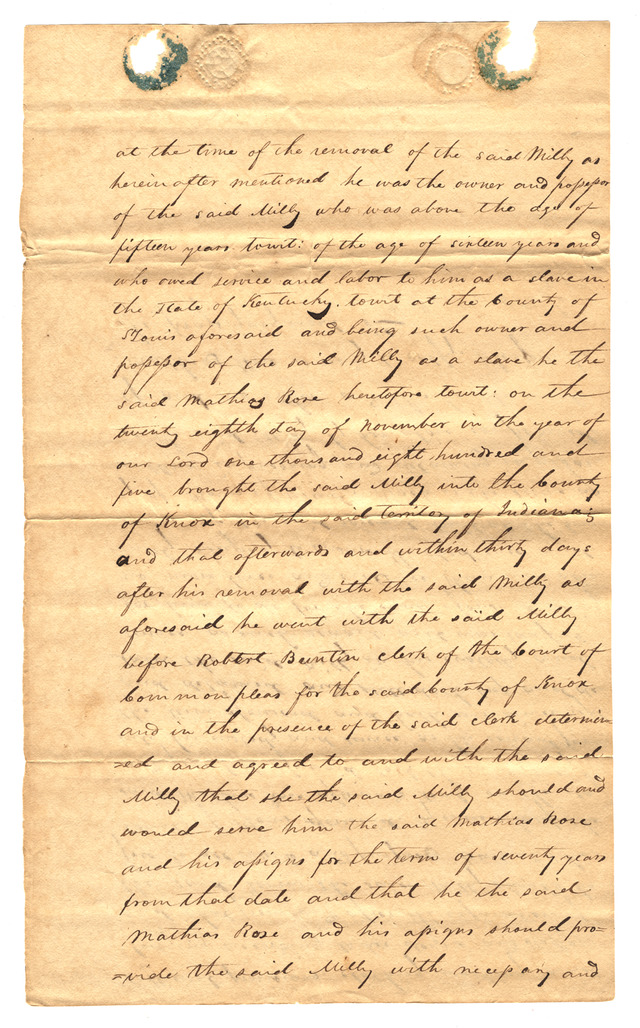 at the time of the removal of the said Milly as
herein after mentioned he was the owner and possessor
of the said Milly who was above the age of
fifteen years towit: of the age of sixteen years and
who owed service and labor to him as a slave in
the state of Kentucky. towit at the County of
St Louis aforesaid and being such owner and
possessor of the said Milly as a slave he the
said Mathias Rose heretofore towit: on the
twenty eighth day of November in the year of
our Lord one thousand eight hundred and
five brought the said Milly into the County
of Knox in the said territory of Indiana;
and that afterwards and within thirty days
after his removal with the said Milly as
aforesaid he went with the said Milly
before Robert Buntin clerk of the Court of
Common pleas for the said County of Knox
and in the presence of the said clerk determin=
=ed and agreed to and with the said
Milly that she the said Milly should and
would serve him the said Mathias Rose
and his assigns for the term of seventy years
from that date and that he the said
Mathias Rose and his assigns should pro=
=vide the said Milly with necessary and